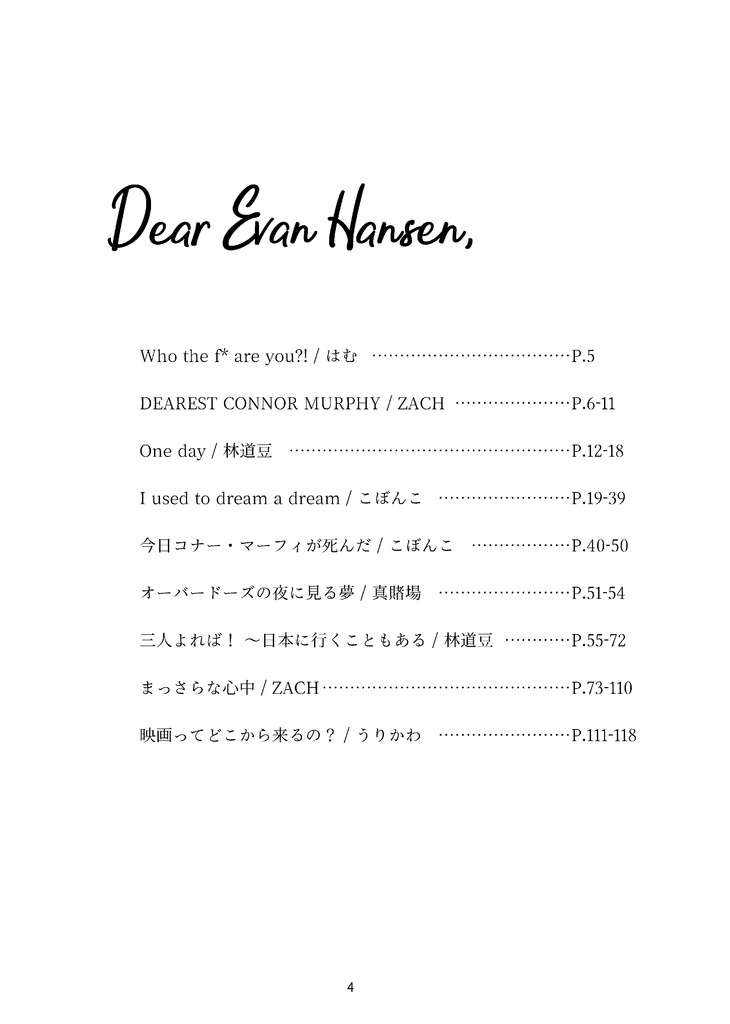 Dear Evan Hansen,
Who the f* are you?! / はむ …………………………………P.5
DEAREST CONNOR MURPHY / ZACH …………………P.6-11
One day / 林道豆 ………………………………………………P.12-18
I used to dream a dream / こぼんこ ……………………P.19-39
今日コナー・マーフィが死んだ / こぼんこ ………………P.40-50
オーバードーズの夜に見る夢 / 真賭場 ……………………P.51-54
三人よれば！ ～日本に行くこともある / 林道豆 …………P.55-72
まっさらな心中 / ZACH…………………………………………P.73-110
映画ってどこから来るの？ / うりかわ ……………………P.111-118
4